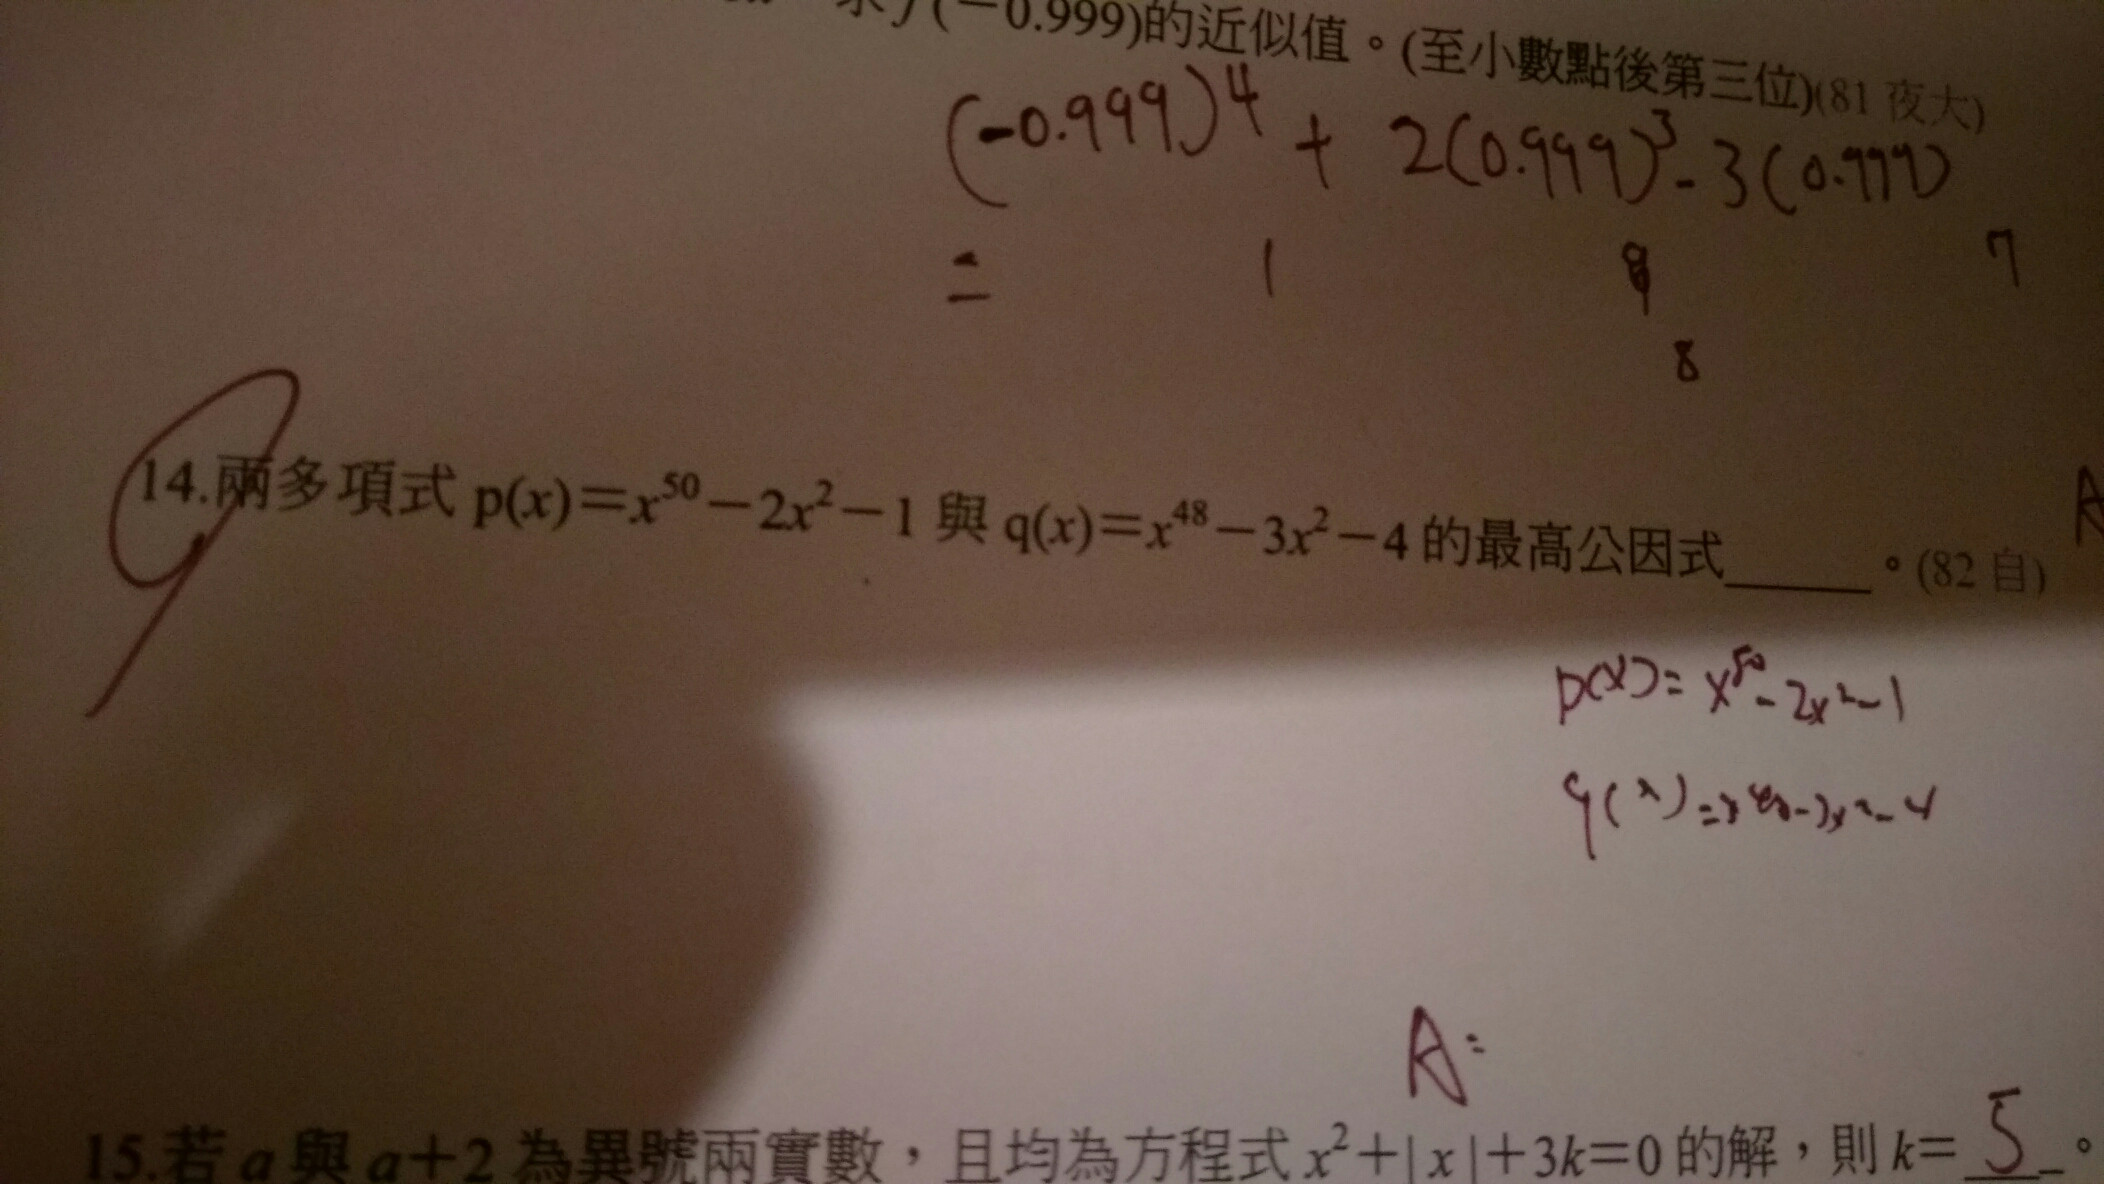 (−0.999)的近似值。(至小數點後第三位)(81 夜大)
(-0.999)⁴ + 2(0.999)³ - 3(0.999)
= 1 8 7
8
14.兩多項式 p(x)＝x⁵⁰－2x²－1 與 q(x)＝x⁴⁸－3x²－4 的最高公因式_____。(82 自)
A
p(x)= x⁵⁰-2x²-1
q(x)=x⁴⁸-3x²-4
A=
15.若 a 與 a＋2 為異號兩實數，且均為方程式 x²＋| x |＋3k＝0 的解，則 k＝ 5 。